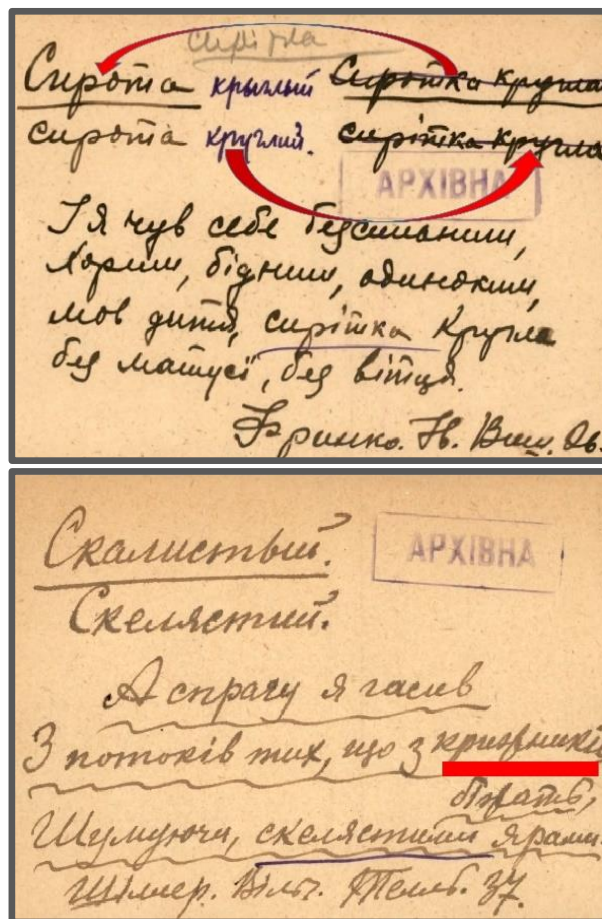 сирітка
Сирота круглый Сиротка кругла
сирота круглий. сирітка кругла
АРХІВНА
І я чув себе безсильним,
Хорим, бідним, одиноким,
мов дитя, сирітка кругла
без матусі, без вітця.
Франко. Ів. Виш. 26.
Скалистый.
АРХІВНА
Скелястий.
А спрагу я гасив
З потоків тих, що з криівників
біжать,
Шумуючи, скелястими ярами.
Шіллер. Вільг. Телль. 37.